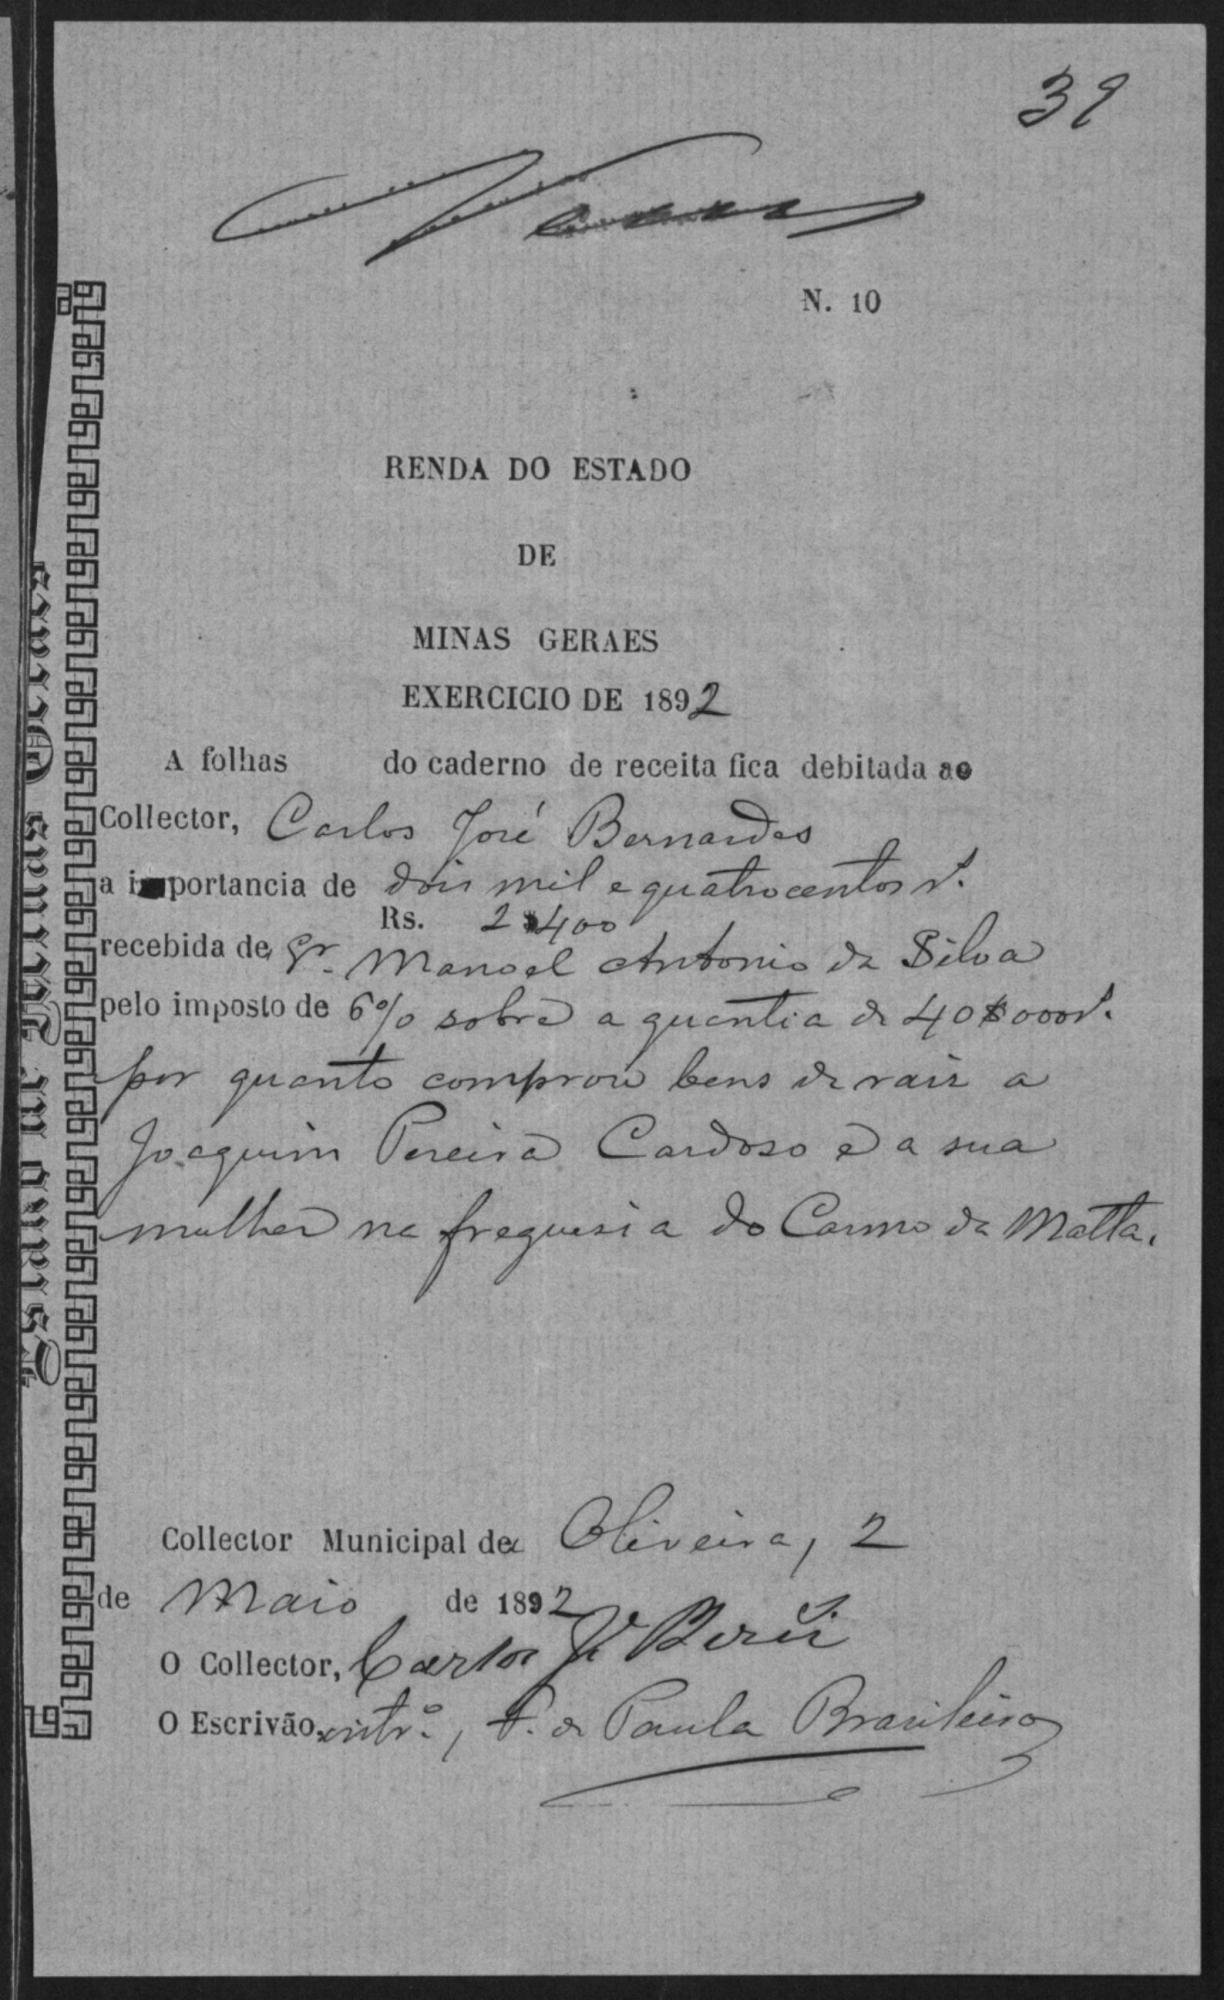 39
N. 10
RENDA DO ESTADO
DE
MINAS GERAES
EXERCICIO DE 1892
A folhas do caderno de receita fica debitada ao
Collector, Carlos José Bernardes
a importancia de dois mil e quatrocentos rs.
Rs. 2$400
recebida de Sr. Manoel Antonio da Silva
pelo imposto de 6% sobre a quantia de 40$000rs.
por quanto comprou bens de raiz a
Joaquim Pereira Cardoso e a sua
mulher na freguesia do Carmo da Matta.
Collector Municipal de Oliveira, 2
de Maio de 1892
O Collector, Carlos Jé
O Escrivão, intrº, F. de Paula Brasileiro
Estado de Minas Geraes